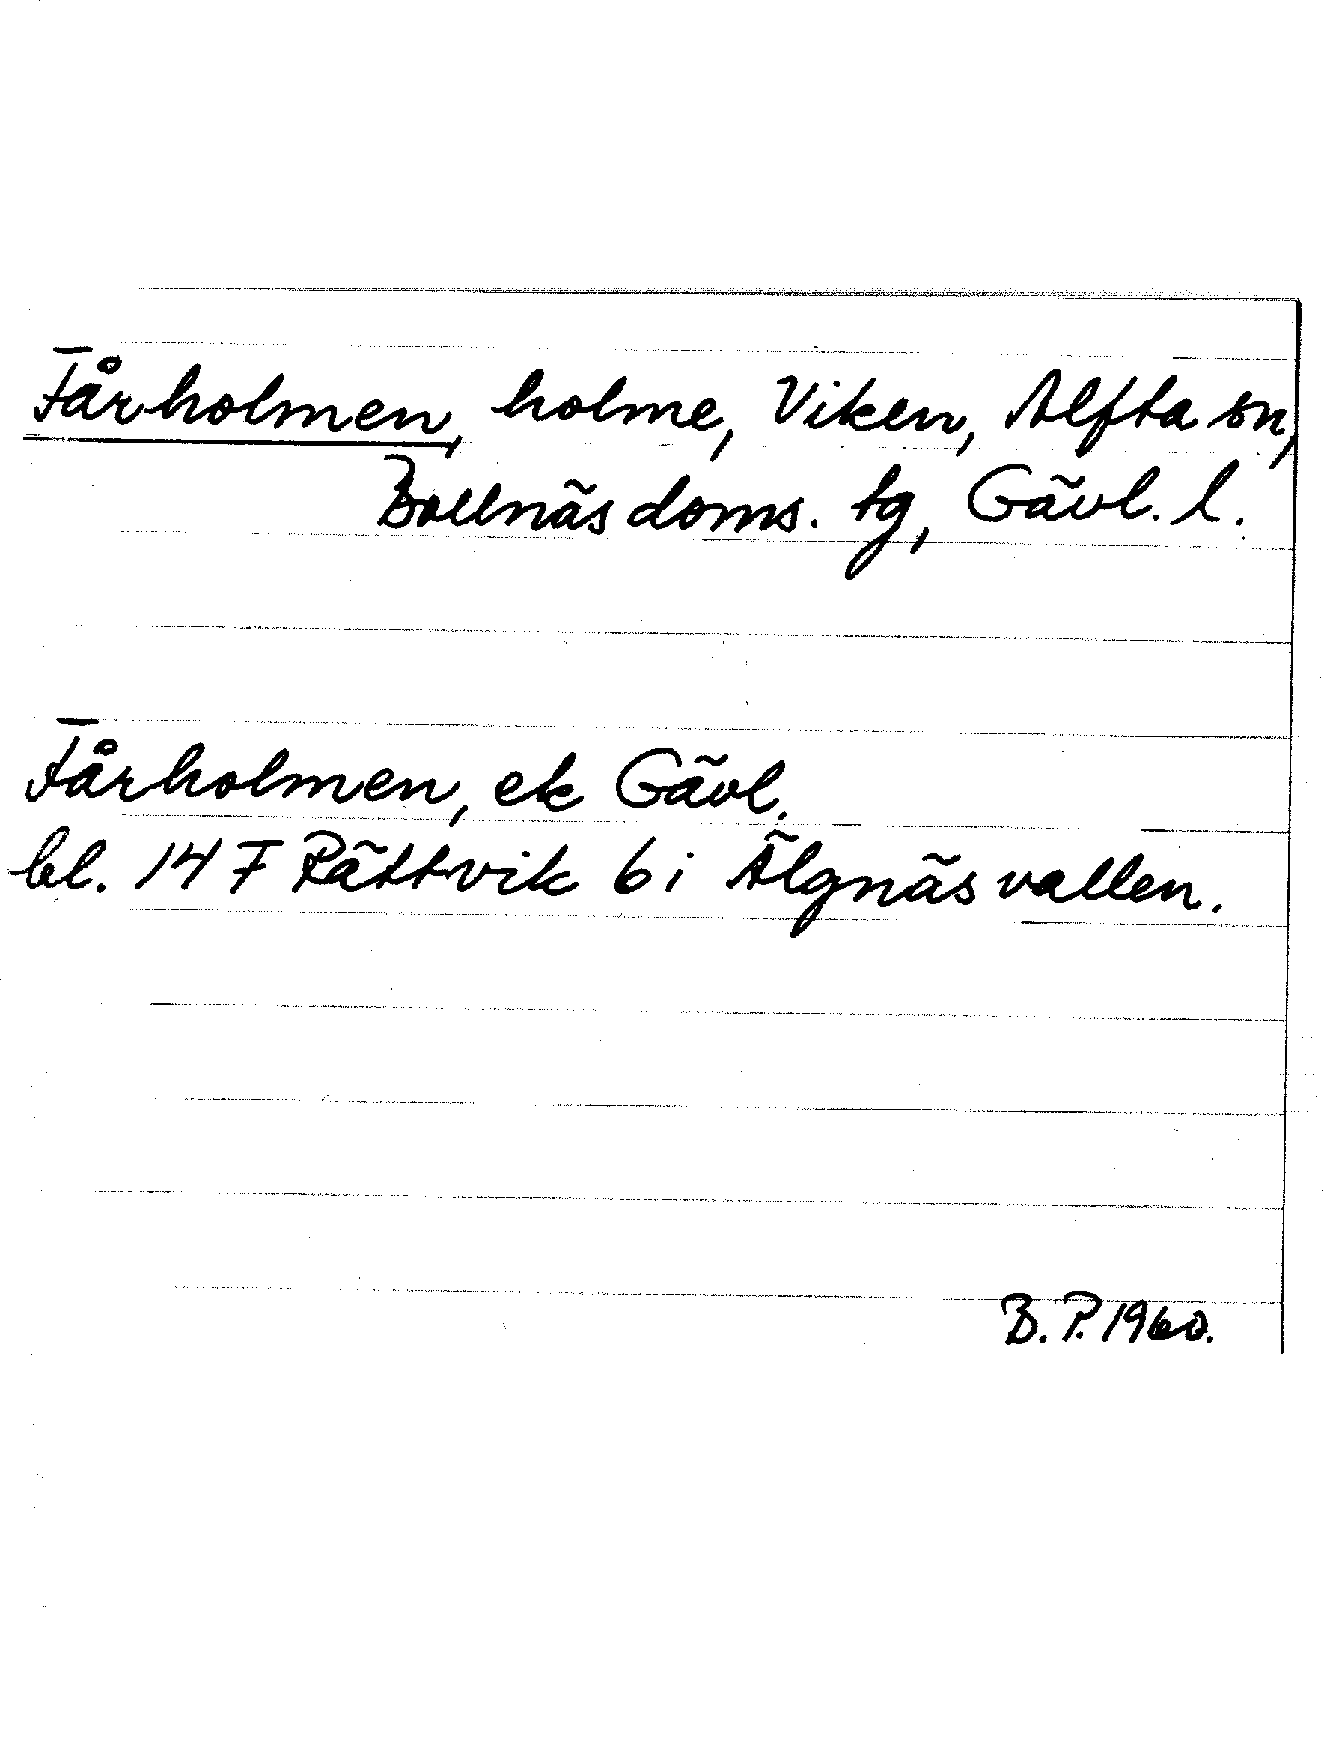 Fårholmen, holme, Viken, Alfta sn,
Bollnäs doms. tg, Gävl. l.
Fårholmen, ek Gävl.
bl. 14 F Rättvik 6 i Älgnäsvallen.
B. P. 1960.